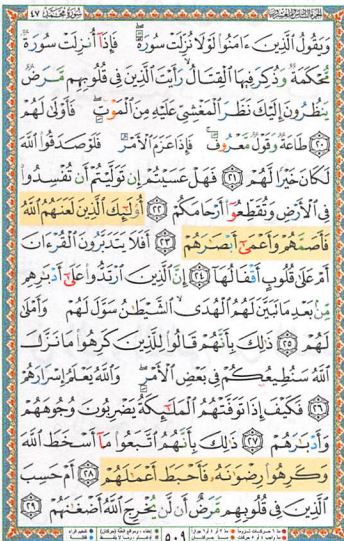 سورة محمد ٤٧
وَيَقُولُ ٱلَّذِينَ ءَامَنُوا۟ لَوْلَا نُزِّلَتْ سُورَةٌ ۖ فَإِذَآ أُنزِلَتْ سُورَةٌ
مُّحْكَمَةٌ وَذُكِرَ فِيهَا ٱلْقِتَالُ ۙ رَأَيْتَ ٱلَّذِينَ فِى قُلُوبِهِم مَّرَضٌ
يَنظُرُونَ إِلَيْكَ نَظَرَ ٱلْمَغْشِىِّ عَلَيْهِ مِنَ ٱلْمَوْتِ ۖ فَأَوْلَىٰ لَهُمْ
٢٠ طَاعَةٌ وَقَوْلٌ مَّعْرُوفٌ ۚ فَإِذَا عَزَمَ ٱلْأَمْرُ فَلَوْ صَدَقُوا۟ ٱللَّهَ
لَكَانَ خَيْرًا لَّهُمْ ٢١ فَهَلْ عَسَيْتُمْ إِن تَوَلَّيْتُمْ أَن تُفْسِدُوا۟
فِى ٱلْأَرْضِ وَتُقَطِّعُوٓا۟ أَرْحَامَكُمْ ٢٢ أُو۟لَـٰٓئِكَ ٱلَّذِينَ لَعَنَهُمُ ٱللَّهُ
فَأَصَمَّهُمْ وَأَعْمَىٰٓ أَبْصَـٰرَهُمْ ٢٣ أَفَلَا يَتَدَبَّرُونَ ٱلْقُرْءَانَ
أَمْ عَلَىٰ قُلُوبٍ أَقْفَالُهَآ ٢٤ إِنَّ ٱلَّذِينَ ٱرْتَدُّوا۟ عَلَىٰٓ أَدْبَـٰرِهِم
مِّنۢ بَعْدِ مَا تَبَيَّنَ لَهُمُ ٱلْهُدَى ۙ ٱلشَّيْطَـٰنُ سَوَّلَ لَهُمْ وَأَمْلَىٰ
لَهُمْ ٢٥ ذَٰلِكَ بِأَنَّهُمْ قَالُوا۟ لِلَّذِينَ كَرِهُوا۟ مَا نَزَّلَ
ٱللَّهُ سَنُطِيعُكُمْ فِى بَعْضِ ٱلْأَمْرِ ۖ وَٱللَّهُ يَعْلَمُ إِسْرَارَهُمْ
٢٦ فَكَيْفَ إِذَا تَوَفَّتْهُمُ ٱلْمَلَـٰٓئِكَةُ يَضْرِبُونَ وُجُوهَهُمْ
وَأَدْبَـٰرَهُمْ ٢٧ ذَٰلِكَ بِأَنَّهُمُ ٱتَّبَعُوا۟ مَآ أَسْخَطَ ٱللَّهَ
وَكَرِهُوا۟ رِضْوَٰنَهُۥ فَأَحْبَطَ أَعْمَـٰلَهُمْ ٢٨ أَمْ حَسِبَ
ٱلَّذِينَ فِى قُلُوبِهِم مَّرَضٌ أَن لَّن يُخْرِجَ ٱللَّهُ أَضْغَـٰنَهُمْ ٢٩
٥٠٩